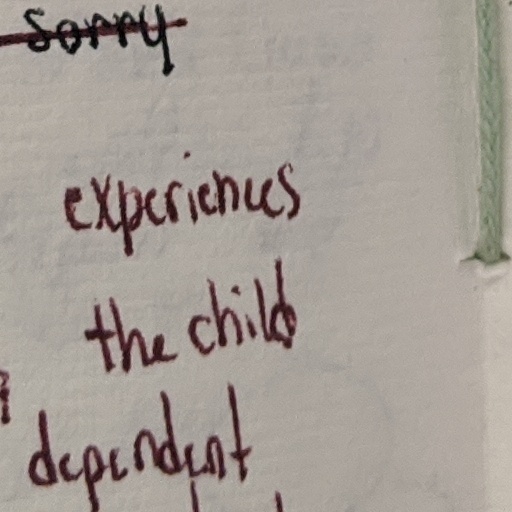 sorry
experiences
the child
dependent